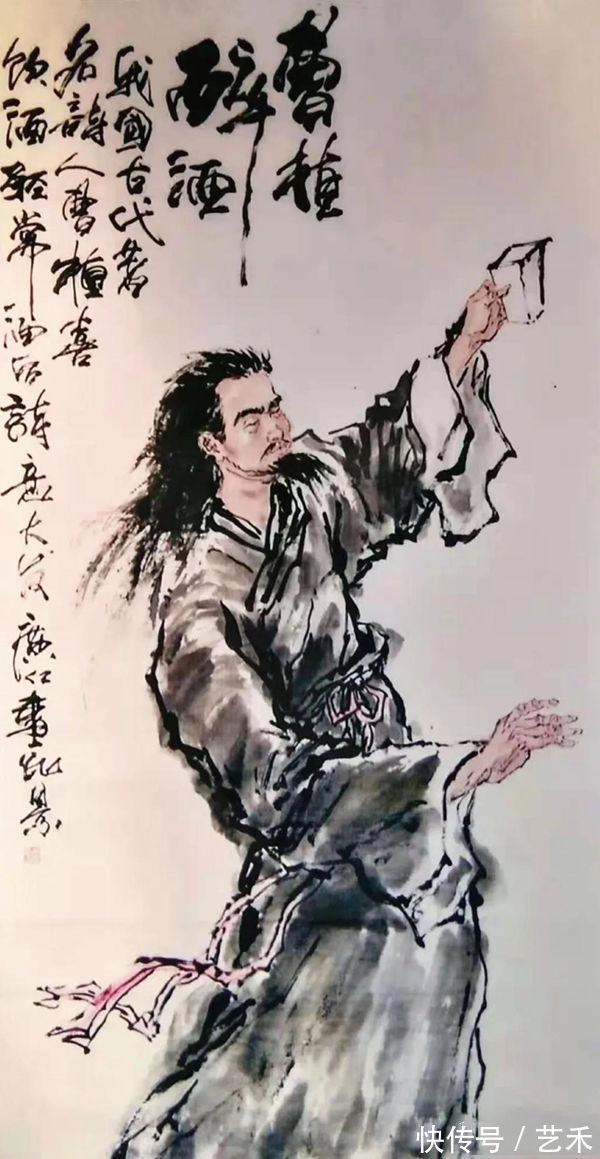 曹植
醉酒
我國古代著
名詩人曹植喜
飲酒經常酒后詩意大发廣仁畫此景
快传号 / 艺禾